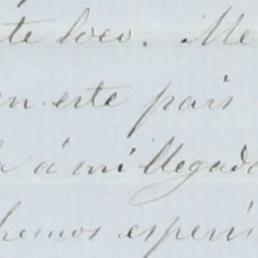 te loco. Me
en este pais
á mi llegada
hemos esperi